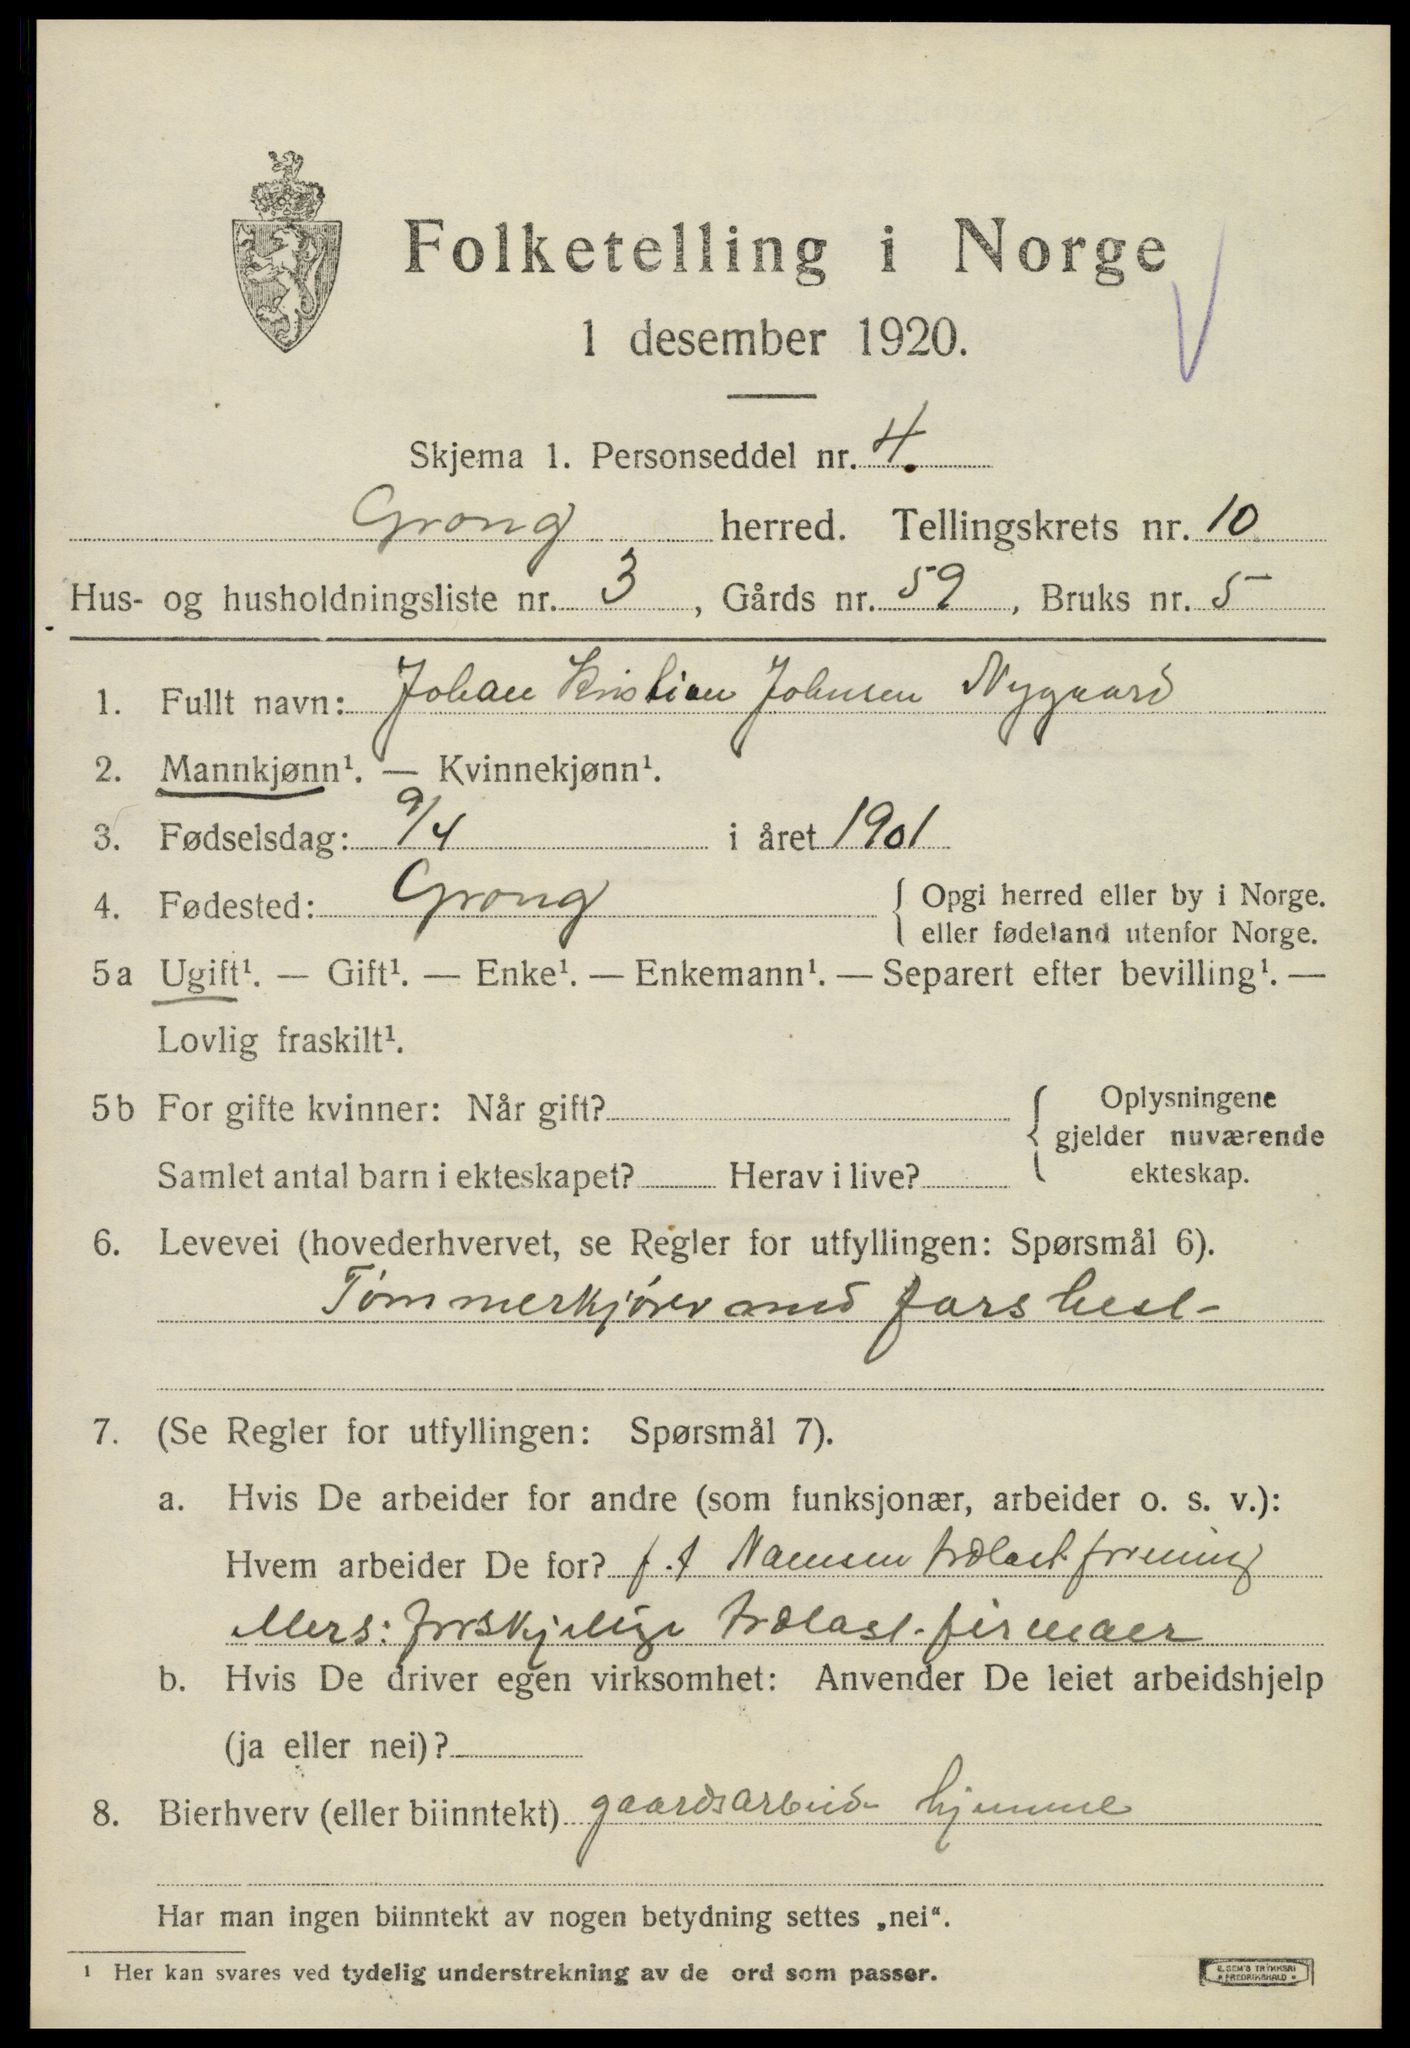 Folketelling i Norge
1 desember 1920.
Skjema 1. Personseddel nr. 4.
Grong herred. Tellingskrets nr. 10
Hus- og husholdningsliste nr. 3, Gårds nr. 59, Bruks nr. 5
1. Fullt navn: Johan Kristian Johnsen Nygaard
2. Mannkjønn¹. — Kvinnekjønn¹.
3. Fødselsdag: 9/4 i året 1901
4. Fødested: Grong { Opgi herred eller by i Norge.
eller fødeland utenfor Norge.
5a Ugift¹. — Gift¹. — Enke¹. — Enkemann¹. — Separert efter bevilling¹. —
Lovlig fraskilt¹.
5b For gifte kvinner: Når gift? { Oplysningene
gjelder nuværende
Samlet antal barn i ekteskapet? Herav i live? ekteskap.
6. Levevei (hovederhvervet, se Regler for utfyllingen: Spørsmål 6).
Tømmerkjører med fars hest-
7. (Se Regler for utfyllingen: Spørsmål 7).
a. Hvis De arbeider for andre (som funksjonær, arbeider o. s. v.):
Hvem arbeider De for? f.t Namsen trælastforening
Mers: forskjellige trælast-firmaer
b. Hvis De driver egen virksomhet: Anvender De leiet arbeidshjelp
(ja eller nei)?
8. Bierhverv (eller biinntekt) gaardsarbeid hjemme
Har man ingen biinntekt av nogen betydning settes „nei“.
¹ Her kan svares ved tydelig understrekning av de ord som passer.
E. SEM'S TRYKKERI
* FREDRIKSHALD *